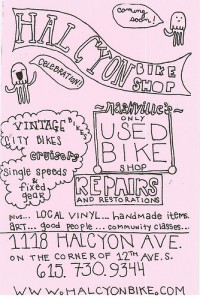 coming soon!
HALCYON BIKE SHOP
CELEBRATION!
~NASHVILLE'S~
ONLY
USED
BIKE
SHOP
VINTAGE
CITY BIKES
cruisers
single speeds
& fixed
gear
REPAIRS
AND RESTORATIONS
plus... LOCAL VINYL... handmade items.
ART... good people... community classes...
1118 HALCYON AVE.
ON THE CORNER OF 12TH AVE. S.
615.730.9344
WWW.HALCYONBIKE.COM